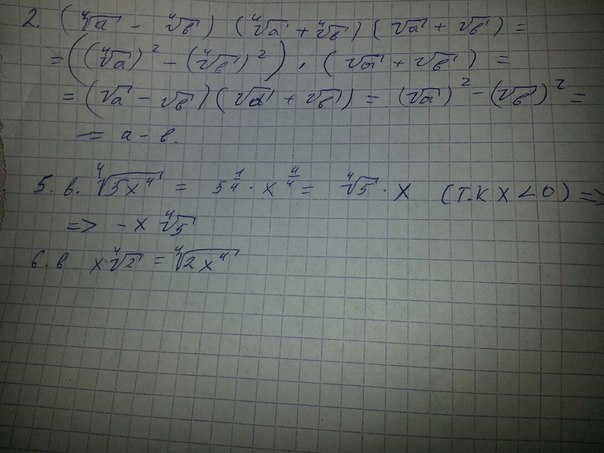 2. (⁴√a - ⁴√b) (⁴√a + ⁴√b) (√a + √b) =
= ((⁴√a)² - (⁴√b)²) · (√a + √b) =
= (√a - √b) (√a + √b) = (√a)² - (√b)² =
= a - b.
5. в. ⁴√5x⁴ = 5^(1/4) · x^(4/4) = ⁴√5 · x (т.к x < 0) =>
=> -x ⁴√5
6. в x ⁴√2 = ⁴√2x⁴